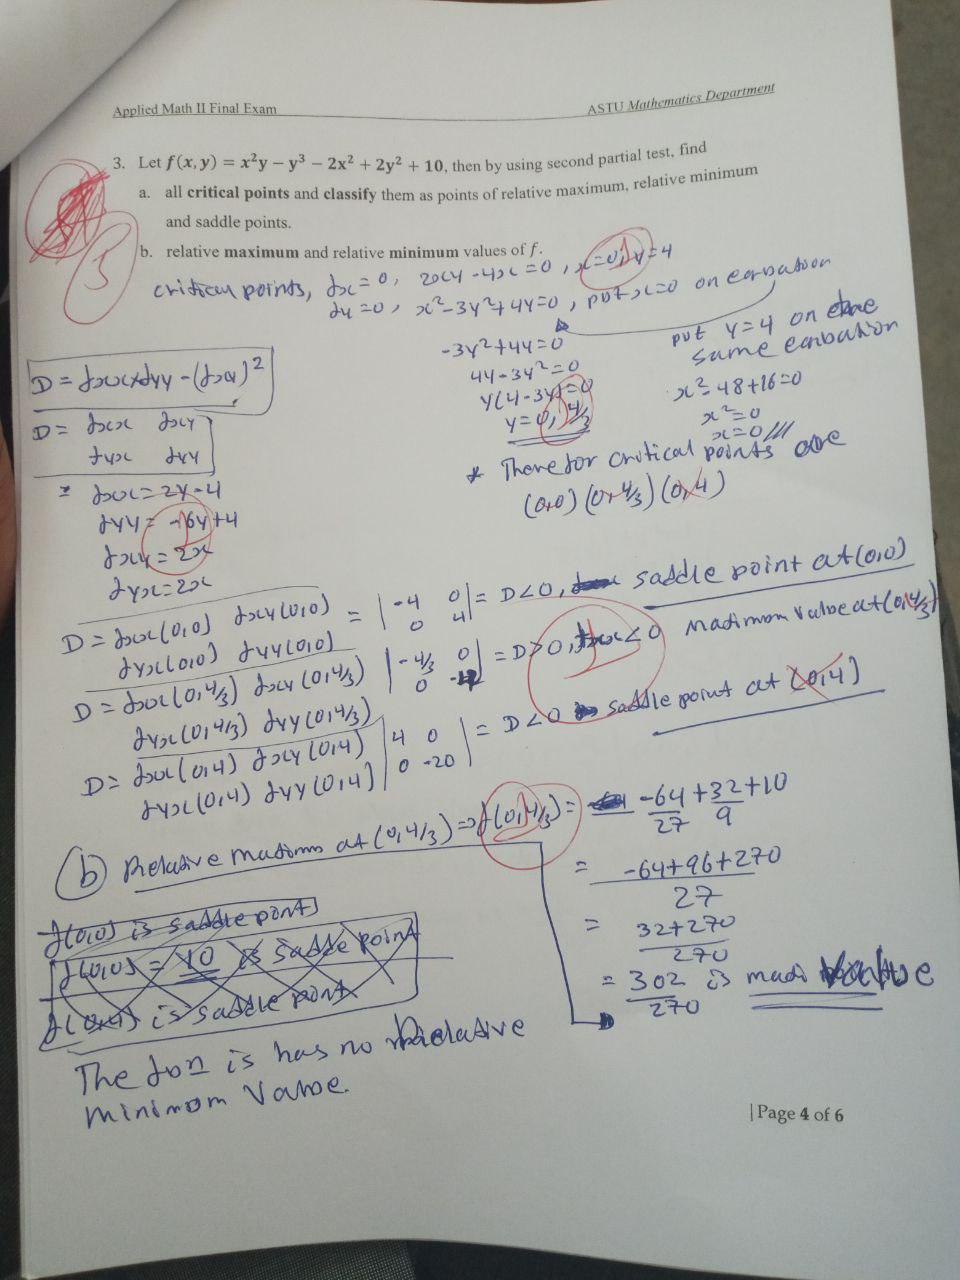 Applied Math II Final Exam
ASTU Mathematics Department
3. Let f(x, y) = x²y − y³ − 2x² + 2y² + 10, then by using second partial test, find
a. all critical points and classify them as points of relative maximum, relative minimum
and saddle points.
b. relative maximum and relative minimum values of f.
critical points, fx = 0, 2xy - 4x = 0, x = 0, y = 4
fy = 0, x² - 3y² + 4y = 0, put x = 0 on
-3y² + 4y = 0
4y - 3y² = 0
y(4 - 3y) = 0
y = 0, 4/3
put y = 4 on
same
x² - 48 + 16 = 0
x² = 0
x = 0
* There for critical points are
(0,0) (0, 4/3) (0, 4)
D = fxx × fyy - (fxy)²
D = fxx fxy
fyx fyy
fxx = 2y - 4
fyy = -6y + 4
fxy = 2x
fyx = 2x
D = fxx(0,0) fxy(0,0) = | -4 0 | = D < 0, saddle point at (0,0)
fyx(0,0) fyy(0,0) 0 4
D = fxx(0, 4/3) fxy(0, 4/3) | -4/3 0 | = D > 0, fxx < 0 value at (0, 4/3)
fyx(0, 4/3) fyy(0, 4/3) 0
D = fxx(0,4) fxy(0,4) | 4 0 | = D < 0 saddle point at (0,4)
fyx(0,4) fyy(0,4) 0 -20
(b) Relative at (0, 4/3) => f(0, 4/3) = -64/27 + 32/9 + 10
= -64 + 96 + 270 / 27
= 32 + 270 / 270
= 302 / 270 is
f(0,0) is saddle point
f(0,0) = 10 is saddle point
f(0,4) is saddle point
The is has no Relative
minimum value.
| Page 4 of 6